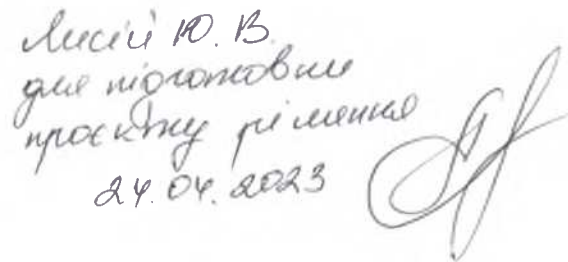 Лисій Ю. В.
для підготовки
проєкту рішення
24.04.2023